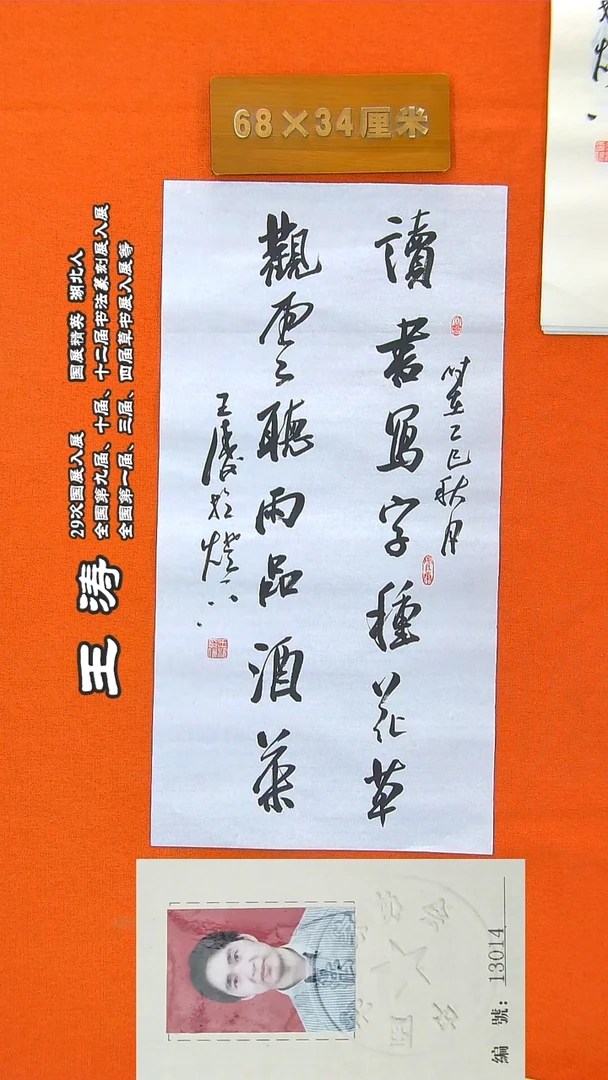 68×34厘米
讀書寫字種花草
時在乙巳秋月
觀雲聽雨品酒茶
王濤於燈下
王 涛
29次国展入展 国展精英 湖北人
全国第九届、十届、十二届书法篆刻展入展
全国第一届、三届、四届草书展入展等
編 號：13014